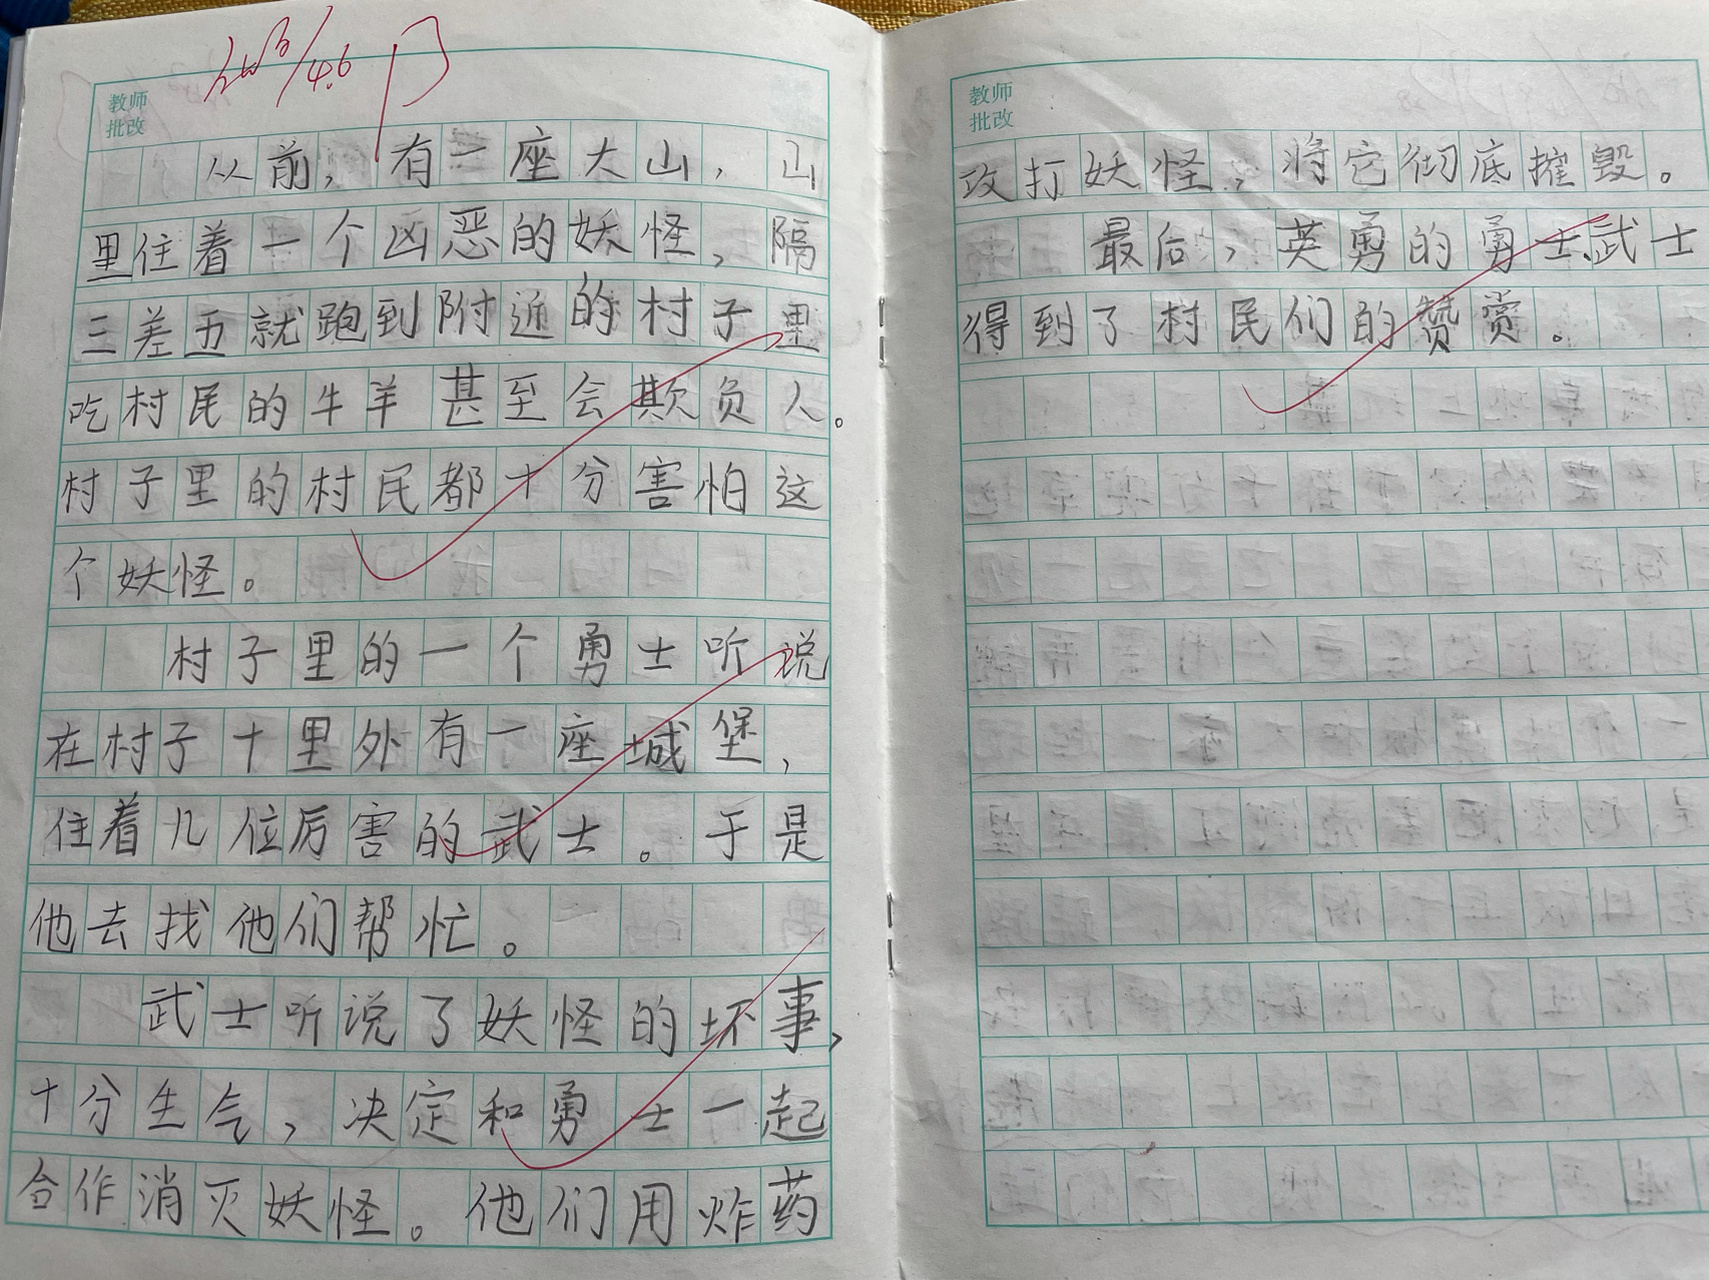 教师
批改
从前，有一座大山，山
里住着一个凶恶的妖怪，隔
三差五就跑到附近的村子里
吃村民的牛羊甚至会欺负人。
村子里的村民都十分害怕这
个妖怪。
村子里的一个勇士听说
在村子十里外有一座城堡，
住着几位厉害的武士。于是
他去找他们帮忙。
武士听说了妖怪的坏事，
十分生气，决定和勇士一起
合作消灭妖怪。他们用炸药
教师
批改
攻打妖怪，将它彻底摧毁。
最后，英勇的勇士、武士
得到了村民们的赞赏。